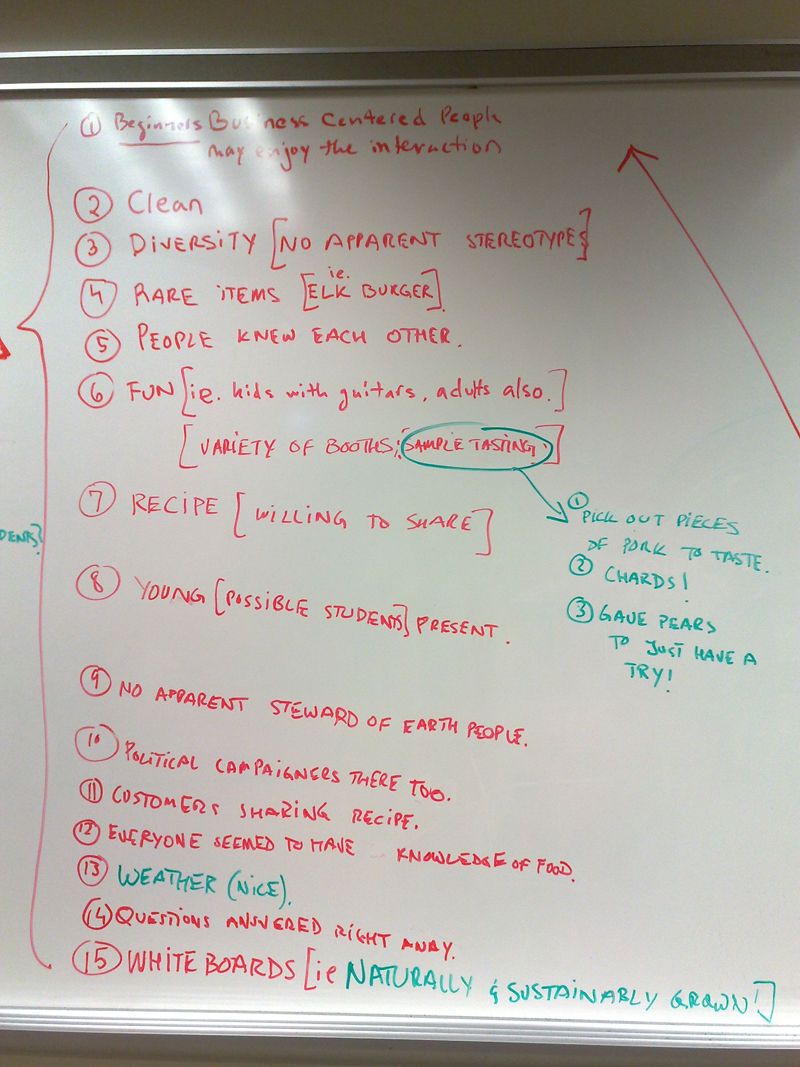 ① Beginners Business Centered People
may enjoy the interaction
② Clean
③ DIVERSITY [NO APPARENT STEREOTYPES]
④ RARE ITEMS [ie. ELK BURGER].
⑤ PEOPLE KNEW EACH OTHER.
⑥ FUN [ie. kids with guitars, adults also.]
[VARIETY OF BOOTHS; SAMPLE TASTING.]
⑦ RECIPE [WILLING TO SHARE]
① PICK OUT PIECES
OF PORK TO TASTE.
② CHARDS!
③ GAVE PEARS
TO JUST HAVE A
TRY!
⑧ YOUNG [POSSIBLE STUDENTS] PRESENT.
⑨ NO APPARENT STEWARD OF EARTH PEOPLE.
⑩ POLITICAL CAMPAIGNERS THERE TOO.
⑪ CUSTOMERS SHARING RECIPE.
⑫ EVERYONE SEEMED TO HAVE KNOWLEDGE OF FOOD.
⑬ WEATHER (NICE).
⑭ QUESTIONS ANSWERED RIGHT AWAY.
⑮ WHITE BOARDS [ie NATURALLY & SUSTAINABLY GROWN!]